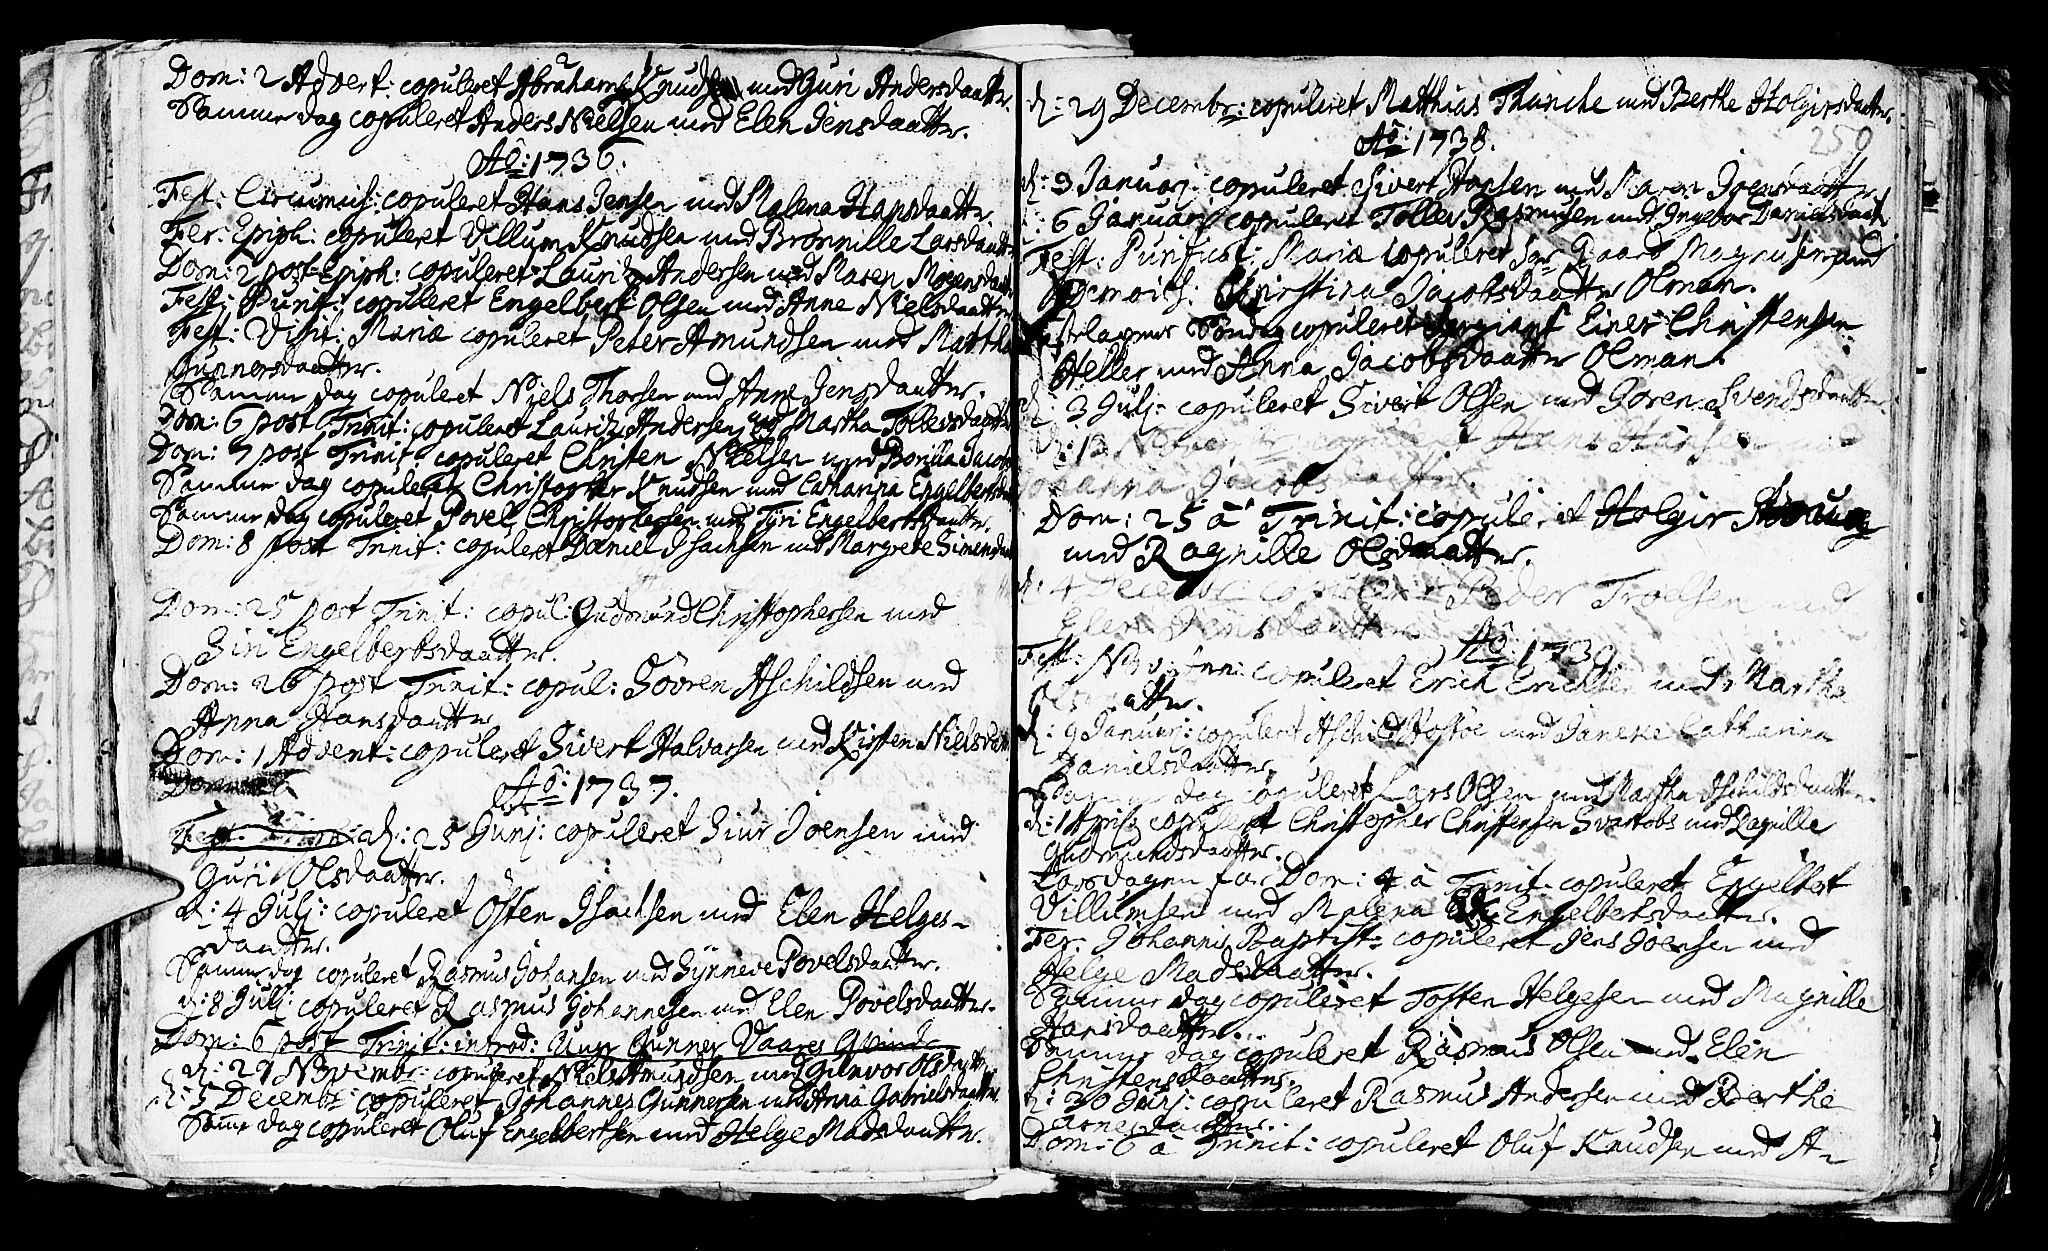 Dom: 2 Advert: copuleret Abraham Knudsen med Guri Andersdaatter.
Samme dag copuleret Anders Nielsen med Elen Jensdaatter.
Aō: 1736.
Fest: Circumcis: copuleret Hans Jensen med Malena Hansdaatter
Fer: Epiph: copuleret Villum Knudsen med Bronnille Larsdaatter
Dom: 2 post Epiph: copuleret Lauritz Andersen med Maren Mogensdaatt
Fest: Purif: copuleret Engelbert Olsen med Anne Nielsdaatter
Fest: Visit: Mariæ copuleret Peter Amundsen med Martha
Gunnersdaatter.
Samme dag copuleret Niels Thorsen med Anne Jensdaatter.
Dom: 6 post Trinit: copuleret Lauritz Andersen med Martha Tollevsdaatter
Dom: 7 post Trinit copuleret Christen Nielsen med Borilla Jacobs
Samme dag copuleret Christopher Knudsen med Catharina Engelbertsd
Samme dag copuleret Povel Christophersen med Tyri Engelbertsdaatter.
Dom: 8 post Trinit: copuleret Daniel Isachsen med Margrete Simensdaa
Dom: 25 post Trinit: copul: Gudmund Christophersen med
Siri Engelbertsdaatter.
Dom: 26 post Trinit: copul: Sövren Aschildsen med
Anna Hansdaatter
Dom: 1 Advent: copuleret Sivert Halvarsen med Kirsten Nielsdaa
Aō: 1737.
d: 25 Junj: copuleret Siur Joensen med
Guri Olsdaatter.
d: 4 Julj: copuleret Osten Isachsen med Elen Helges-
daatter.
Samme dag copuleret Rasmus Johansen med Synneve Povelsdaatter.
d: 8 Julj: copuleret Rasmus Johannesen med Elen Povelsdaatter.
Dom: 6 post Trinit: introd: Ung Gunner Vaares Qvinde
d: 27 Novembr: copuleret Niels Amundsen med Gunvor Olsdaatter
d: 5 Decembr: copuleret Johannes Gunnersen med Anna Gabrielsdaatter
Samme dag copuleret Oluf Engelbertsen med Helge Madsdaatter.
d: 29 Decembr: copuleret Matthias Thusche med Berthe Holgersdaatter.
250
Aō: 1738.
d: 3 Januarj: copuleret Sivert Hansen med Maren Joensdaatter
d: 6 Januarj copuleret Tollev Rasmusen med Ingebor Danielsdaat
Fest: Purificat: Mariæ copuleret Sr Gaard Magnusen med
Christina Jacobsdaatter Olman.
Söndag copuleret Sergiant Einer Christensen
Heller med Anna Jacobsdaatter Olman.
d: 3 Julj: copuleret Sivert Olsen med Goren Svendsdaatter
d: 13 Novembr: copuleret Hans Hansen med
Jacobsdaatter.
Dom: 25 à Trinit: copuleret Holgir
med Ragnille Olsdaatter.
d: 4 Decembr copuleret Peder Troelsen med
Elen Jensdaatter
Aō: 1739
Fest: Novi Ann: copuleret Erich Erichsen med Martha
Olsdaatter.
d: 9 Januarj: copuleret Aschild Rostöe med Janeke Catharina
Danielsdaatter
Samme dag copuleret Lars Olsen med Martha Aschildsdaatter.
d: 1 copuleret Christopher Christensen Svartobs med Dagnille
Gudmundsdaatter.
Lovsdagen for Dom: 4 à Trinit: copuleret Engelbert
Villumsen med Malena Engelbertsdaatter.
Fer: Johannis Baptist: copuleret Jens Joensen med
Helge Madsdaatter.
Samme dag copuleret Tosten Helgesen med Magnille
Hansdaatter.
Samme dag copuleret Rasmus Olsen med Elen
Christensdaatter
d: 30 Junj: copuleret Rasmus Andersen med Berthe
Arnesdaatter.
Dom: 6 à Trinit: copuleret Oluf Knudsen med A-